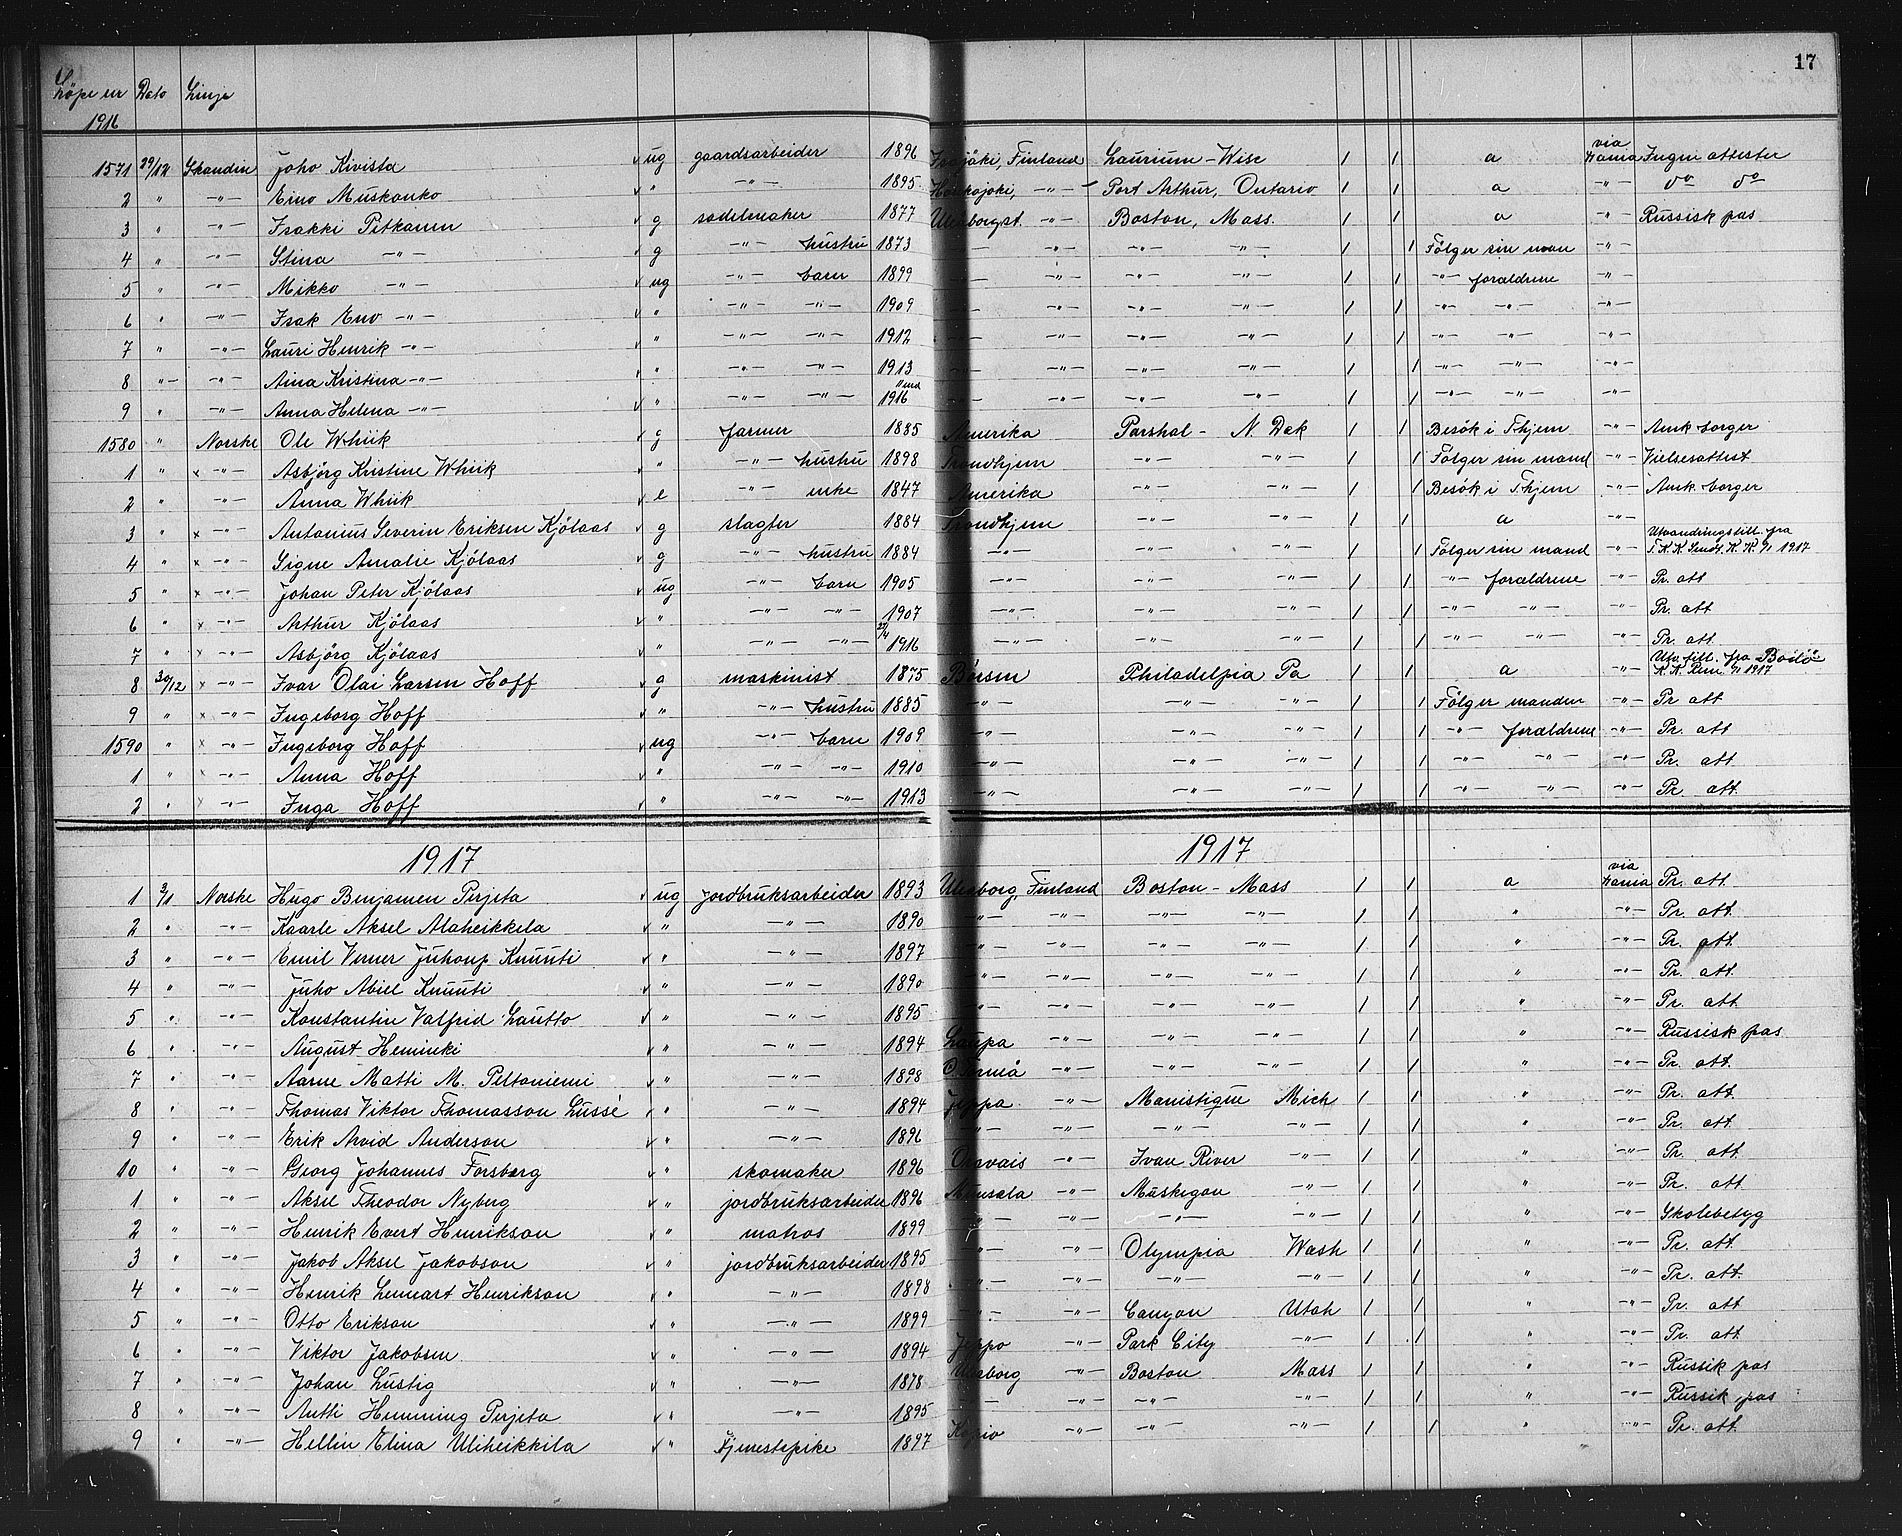 17
Löpe nr Dato Linje
1916
1571 29/12 Skandin Joho Kivista v ug gaardsarbeider 1896 Finland Laurium - Wisc 1 1 a via Hania Ingen attester
2 " -"- Eino Muskanko v " -"- 1895 -"- Port Arthur, Ontario 1 1 a -"- do do
3 " -"- Isakki Pitkanen v g sadelmaker 1877 -"- Boston, Mass. 1 1 a -"- Russisk pas
4 " -"- Stina -"- v g -"- hustru 1873 -"- -"- -"- 1 1 Følger sin man -"-
5 " -"- Mikko -"- v ug -"- barn 1899 -"- -"- -"- 1 1 -"- forældrene -"-
6 " -"- Isak Eno -"- v " -"- -"- 1909 -"- -"- -"- 1 1 -"- -"- -"-
7 " -"- Lauri Henrik -"- v " -"- -"- 1912 -"- -"- -"- 1 1 -"- -"- -"-
8 " -"- Aina Kristina -"- v " -"- -"- 1913 -"- -"- -"- 1 1 -"- -"- -"-
9 " -"- Anna Helena -"- v " -"- -"- 11 md 1916 -"- -"- -"- 1 1 -"- -"- -"-
1580 " Norske Ole Whiik v g farmer 1885 Amerika Parshal - N. Dak 1 1 Besök i Thjem -"- Amk borger
1 " x -"- Asbjörg Kristine Whiik v " -"- hustru 1898 Trondhjem -"- -"- 1 1 Følger sin mand -"- Vielsesattest
2 " -"- Anna Whiik v e -"- enke 1847 Amerika -"- -"- 1 1 Besök i Thjem -"- Amk. borger
3 " x -"- Antonius Severin Eriksen Kjölaas v g slagter 1884 Trondhjem -"- -"- 1 1 a -"-
4 " x -"- Signe Amalie Kjölaas v g -"- hustru 1884 -"- -"- -"- 1 1 Følger sin mand -"- Utvandringstill. fra 1917
5 " x -"- Johan Peter Kjölaas v ug -"- barn 1905 -"- -"- -"- 1 1 -"- forældrene -"- Pr. att
6 " x -"- Arthur Kjölaas v " -"- -"- 1907 -"- -"- -"- 1 1 -"- -"- -"- Pr. att
7 " x -"- Asbjörg Kjölaas v " -"- -"- 27/4 1916 -"- -"- -"- 1 1 -"- -"- -"- Pr. att.
8 30/12 x -"- Ivar Olai Larsen Hoff v g maskinist 1875 Börsen Philadelpia Pa 1 1 a -"- Utv. till. fra 1917
9 " x -"- Ingeborg Hoff v " -"- hustru 1885 -"- -"- -"- 1 1 Følger manden -"- Pr att
1590 " x -"- Ingeborg Hoff v ug -"- barn 1909 -"- -"- -"- 1 1 -"- forældrene -"- Pr. att
1 " x -"- Anna Hoff v " -"- -"- 1910 -"- -"- -"- 1 1 -"- -"- -"- Pr. att
2 " x -"- Inga Hoff v " -"- -"- 1913 -"- -"- -"- 1 1 -"- -"- -"- Pr. att.
1917 1917
1 3/1 Norske Hugo Benjamen Perjeta v ug jordbruksarbeider 1893 Uleaborg, Finland Boston - Mass 1 1 a via Hania Pr. att.
2 " -"- Kaarle Aksel Alaheikkela v " -"- 1890 -"- -"- -"- -"- 1 1 " -"- Pr. att.
3 " -"- Emil Verner Juhoup Knuuti v " -"- 1897 -"- -"- -"- -"- 1 1 " -"- Pr. att.
4 " -"- Juho Abiel Knuuti v " -"- 1890 -"- -"- -"- -"- 1 1 " -"- Pr. att.
5 " -"- Konstantin Valfrid Lautto v " -"- 1895 -"- -"- -"- -"- 1 1 " -"- Pr. att
6 " -"- August Heminki v " -"- 1894 Laupa -"- -"- -"- 1 1 " -"- Russisk pas
7 " -"- Aarne Matti M. Peltoniemi v " -"- 1898 -"- -"- -"- 1 1 " -"- Pr. att.
8 " -"- Thomas Viktor Thomasson Lussé v " -"- 1894 Jeppa -"- Manistique Mich 1 1 " -"- Pr. att
9 " -"- Erik Arvid Anderson v " -"- 1896 -"- -"- -"- -"- 1 1 " -"- Pr. att.
10 " -"- Georg Johannes Forsberg v " skomaker 1896 Oravais -"- Ivan River -"- 1 1 " -"- Pr. att
1 " -"- Aksel Theodor Nyberg v " jordbruksarbeider 1896 Munsala -"- Muskegon -"- 1 1 " -"- Pr. att
2 " -"- Henrik Evert Henrikson v " matros 1899 -"- -"- -"- -"- 1 1 " -"- Skolebetyg
3 " -"- Jakob Aksel Jakobson v " jordbruksarbeider 1895 -"- -"- Olympia Wash 1 1 " -"- Pr. att.
4 " -"- Henrik Lennart Henrikson v " -"- 1898 -"- -"- -"- -"- 1 1 " -"- Pr. att.
5 " -"- Otto Erikson v " -"- 1899 -"- -"- Canyon Utah 1 1 " -"- Pr. att
6 " -"- Viktor Jakobsen v " -"- 1894 Jeppo -"- Park City -"- 1 1 " -"- Pr. att
7 " -"- Johan Lustig v " -"- 1878 Uleaborg -"- Boston Mass 1 1 " -"- Russik pas
8 " -"- Antti Hemming Perjeta v " -"- 1895 -"- -"- -"- -"- 1 1 " -"- Russik pas
9 " -"- Hellin Elina Uliheikkila v " tjenestepike 1897 -"- -"- -"- 1 1 " -"- Pr. att.